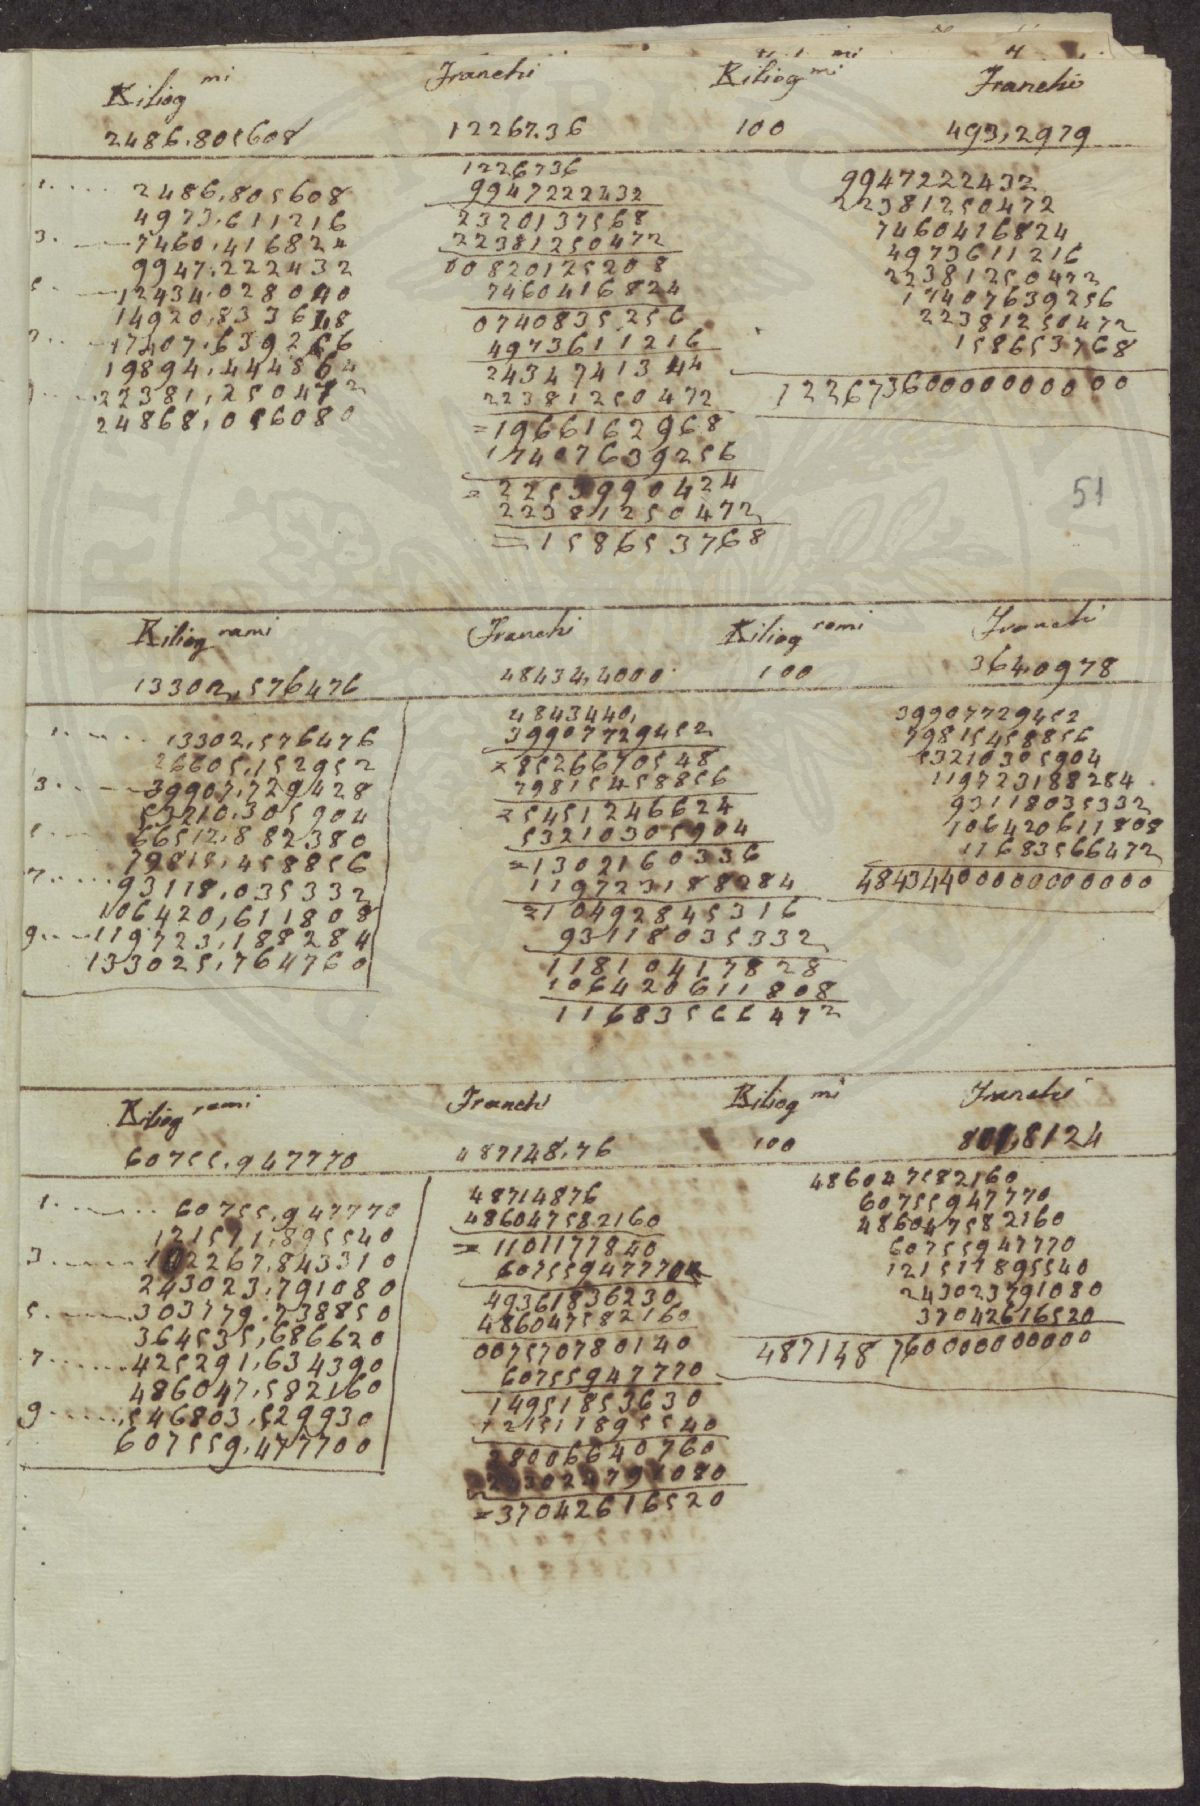 Kiliog mi Franchi Kiliog mi Franchi
2486,805608 12267.36 100 493,2979
1..... 2486,805608
4973,611216
3. ....7460,416824
9947,222432
5 ....12434,028040
14920,833648
7....17407,639256
19894,444864
22381,250472
24868,056080
1226736
9947222432
2320137568
22381250472
00820125208
7460416824
0740835256
4973611216
2434741344
22381250472
=1966162968
17407639256
=2253990424
22381250472
=158653768
9947222432
22381250472
7460416824
4973611216
22381250472
17407639256
22381250472
158653768
12267360000000000
51
Kiliog rami Franchi Kiliog rami Franchi
13302,576476 48434,4000 100 364,0978
1..... 13302,576476
26605,152952
3.....39907,729428
53210,305904
5.....66512,882380
79815,458856
7.....93118,035332
106420,611808
9....119723,188284
133025,764760
4843440,
39907729452
=8526670548
79815458856
=5451246624
53210305904
=1302160336
119723188284
=10492845316
93118035332
11810417828
106420611808
11683566472
39907729452
79815458856
53210305904
119723188284
93118035332
106420611808
11683566472
48434400000000000
Kiliog rami Franchi Kiliog mi Franchi
60755,947770 487148,76 100 801,8124
1........ 60755,947770
121511,895540
3........182267,843310
243023,791080
5........303779,738850
364535,686620
7......425291,634390
486047,582160
9......546803,529930
607559,477700
48714876
486047582160
= 11011777840
60755947770
49361836230
486047582160
007570780140
60755947770
14951853630
121511895540
28006640760
243023791080
=37042616520
486047582160
60755947770
486047582160
60755947770
121511895540
243023791080
37042616520
487148760000000000